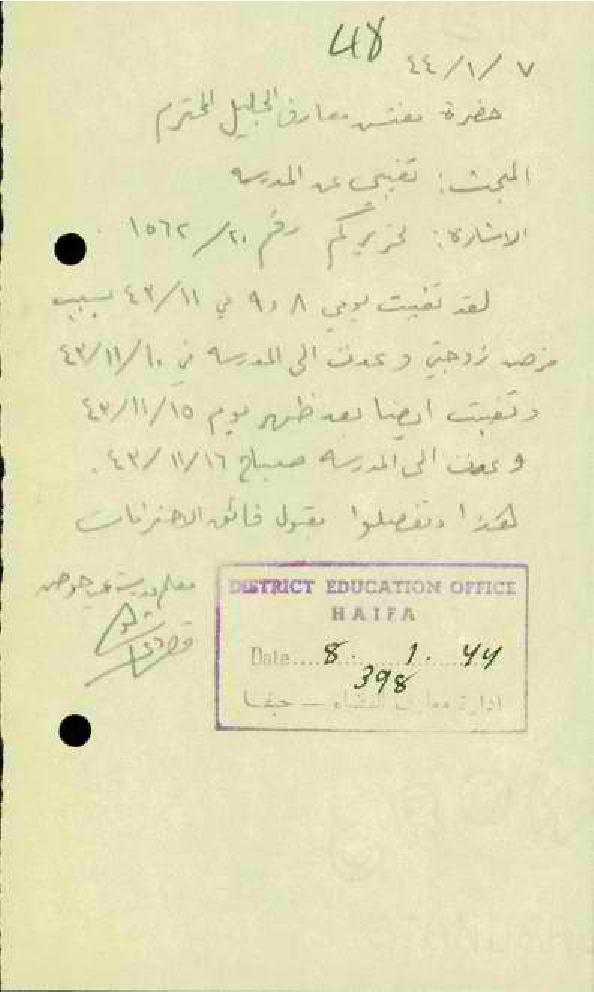 48
٧ / ١ / ٤٤
حضرة مفتش معارف الجليل المحترم
المبحث: تغيبي عن المدرسه
الاشارة: تحريركم رقم ٢٠/١٥٦٢ .
لقد تغيبت يومي ٨ و ٩ في ٤٣/١١ بسبب
مرض زوجتي وعدت الى المدرسه في ٤٣/١١/١٠
وتغيبت ايضا بعد ظهر يوم ٤٣/١١/١٥
وعدت الى المدرسه صباح ٤٣/١١/١٦ .
هكذا وتفضلوا بقبول فائق الاحترامات
معلم مدرسة
DISTRICT EDUCATION OFFICE
HAIFA
Date.... 8. 1. 44
398
ادارة معارف القضاء — حيفا